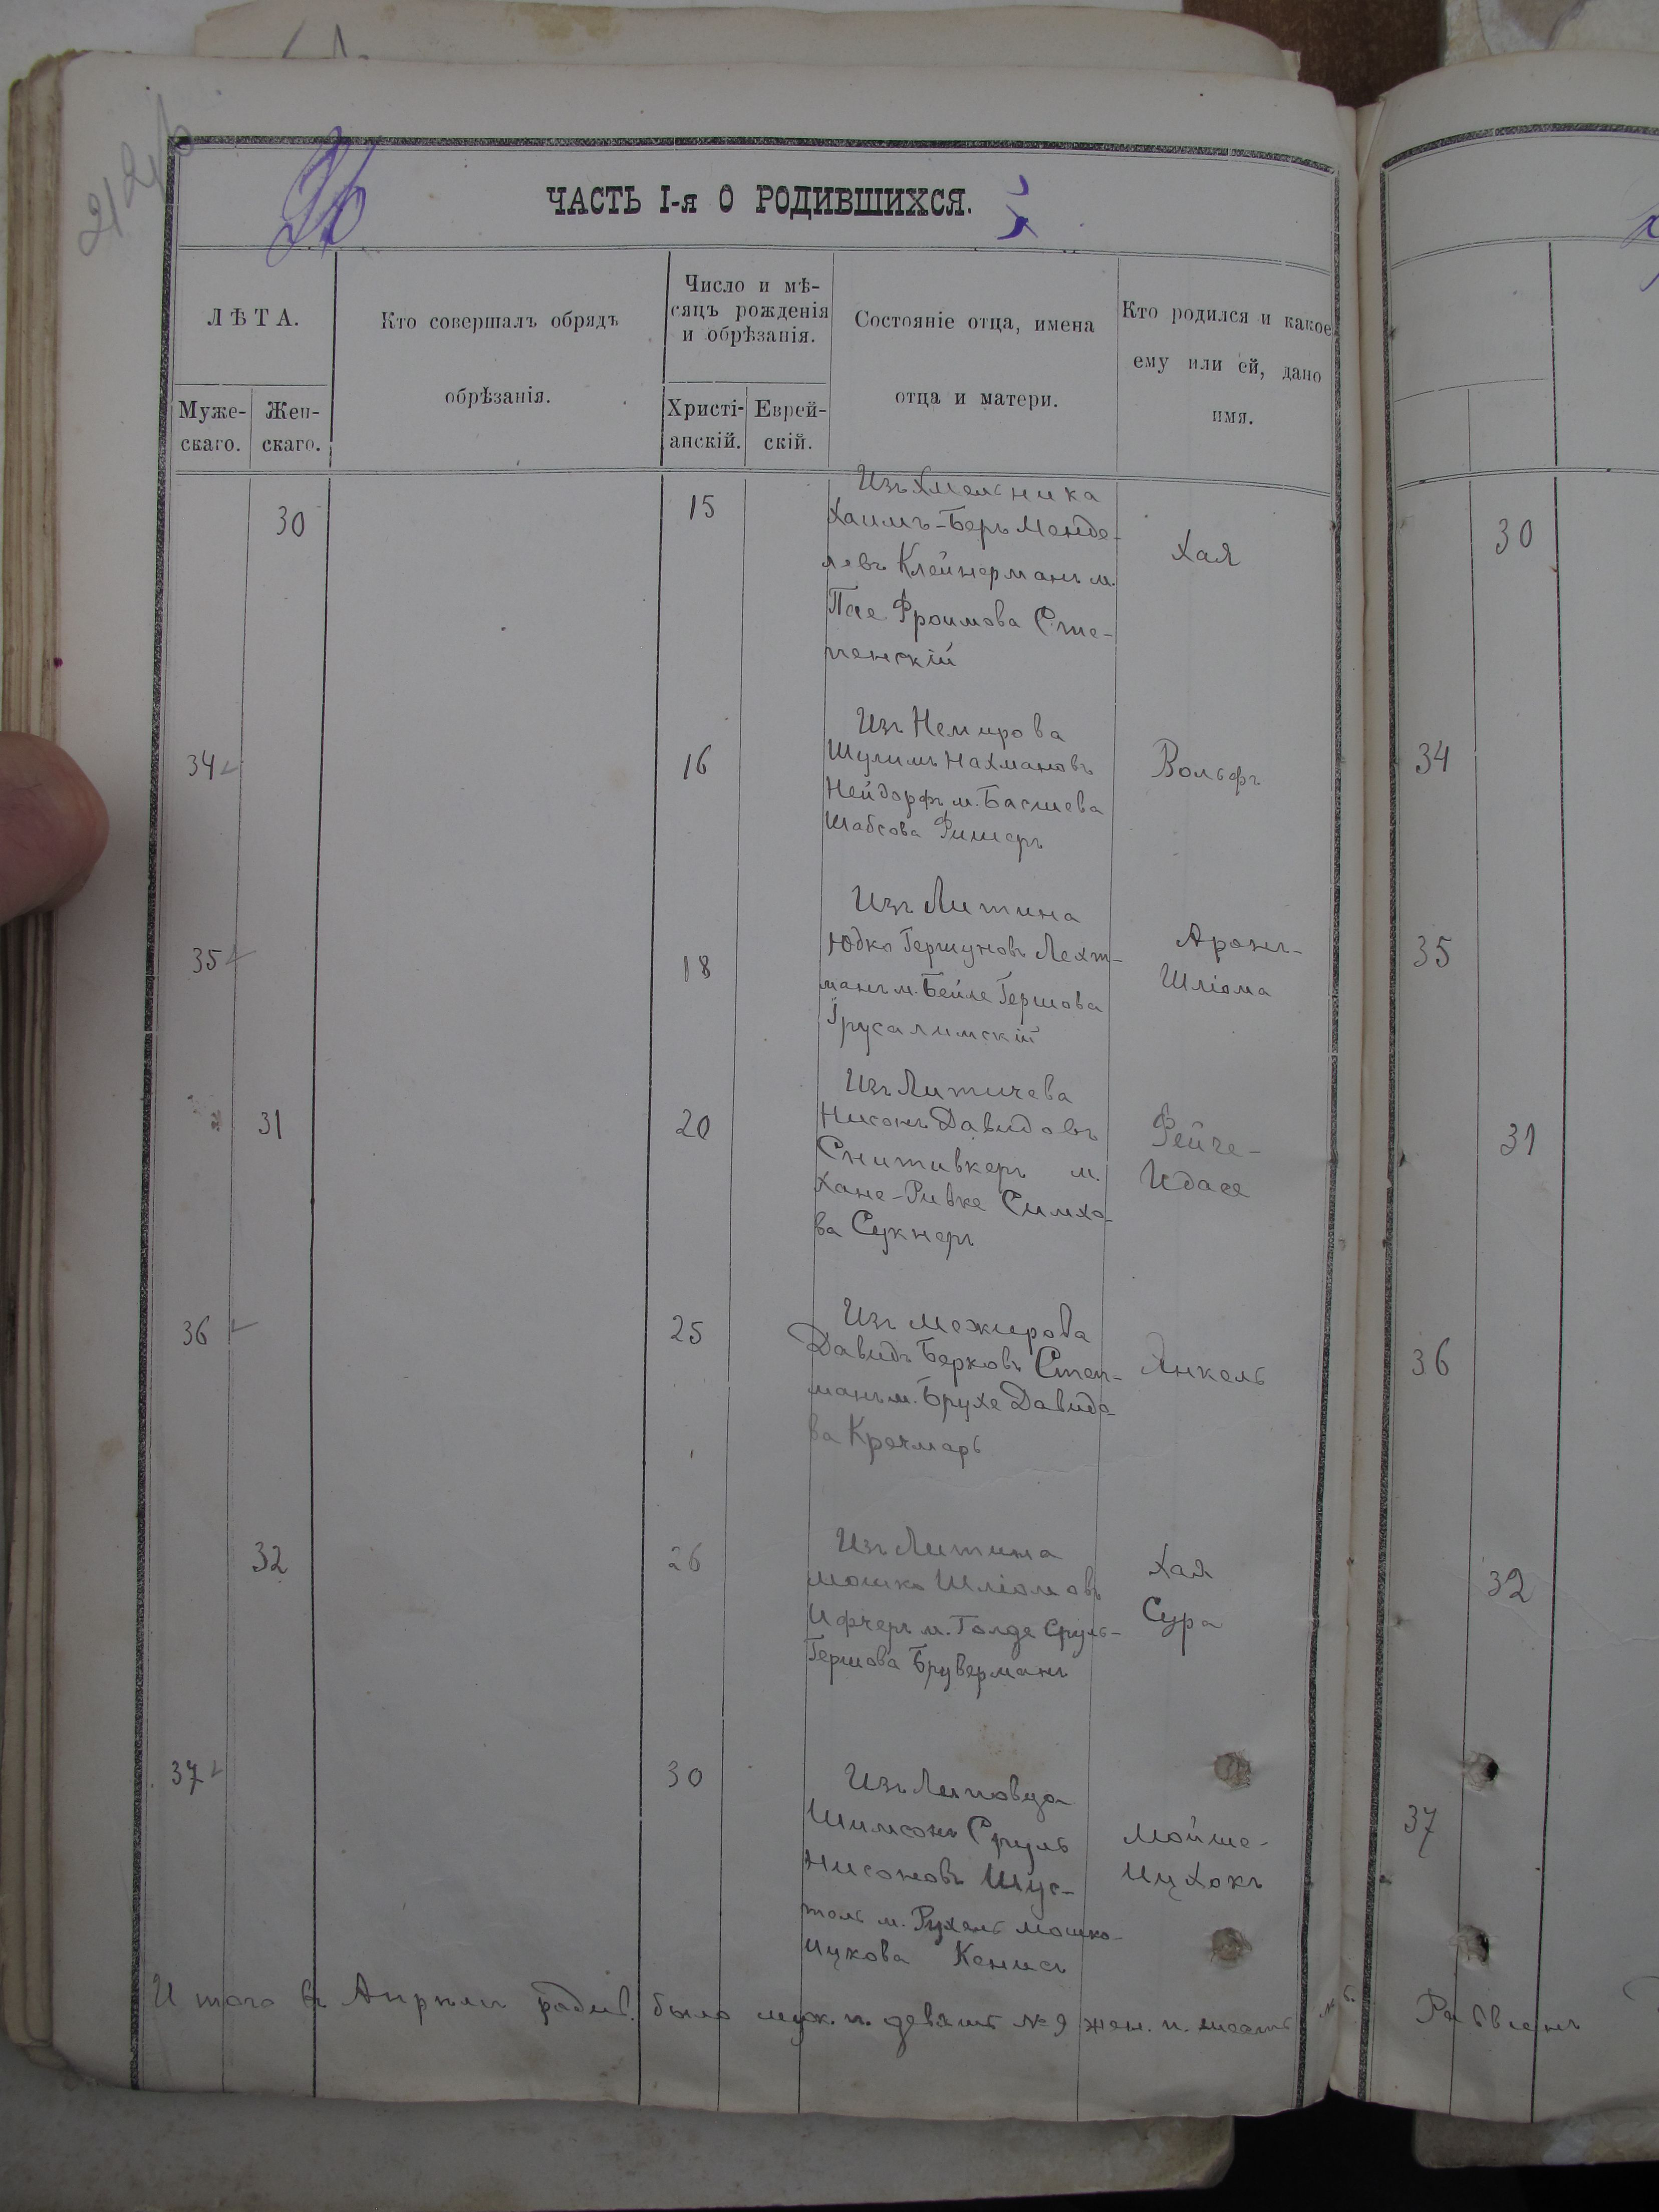 ЧАСТЬ I-я О РОДИВШИХСЯ.
ЛѢТА.
Муже-
скаго.
Жен-
скаго.
Кто совершалъ обрядъ
обрѣзанія.
Число и мѣ-
сяцъ рожденія
и обрѣзанія.
Христі-
анскій.
Еврей-
скій.
Состояніе отца, имена
отца и матери.
Кто родился и какое
ему или ей, дано
имя.
30
15
Изъ Хмельника
Хаимъ-Беръ Менде-
левъ Клейнерманъ м.
Пае Фроимова Сте-
пенскій
Хая
30
34
16
Изъ Немирова
Шулимъ Нахмановъ
Нейдорфъ м. Басшева
Шабсова Фишеръ
Вольфъ
34
35
18
Изъ Литина
Юдко Гершуновъ Лехт-
манъ м. Бейле Гершова
Ірусалимскій
Аронъ-
Шліома
35
31
20
Изъ Литичева
Нисонъ Давидовъ
Снитивкеръ м.
Хане-Ривке Симхо-
ва Сукнеръ
Фейге-
Идасе
31
36
25
Изъ Межирова
Давидъ Берковъ Степ-
манъ м. Брухе Давидо-
ва Кречмаръ
Янкель
36
32
26
Изъ Литина
Мошко Шліомовъ
Ифчеръ м. Голде Сруль-
Гершова Бруверманъ
Хая
Сура
32
37
30
Изъ Липовца
Шимсонъ Сруль
Нисоновъ Шус-
толь м. Рухель Мошко-
Ицкова Кенисъ
Мойше-
Ицхокъ
37
Итого въ Апрѣли родив. было муж. п. девять № 9 жен. п. шесть № 6.
Раввинъ